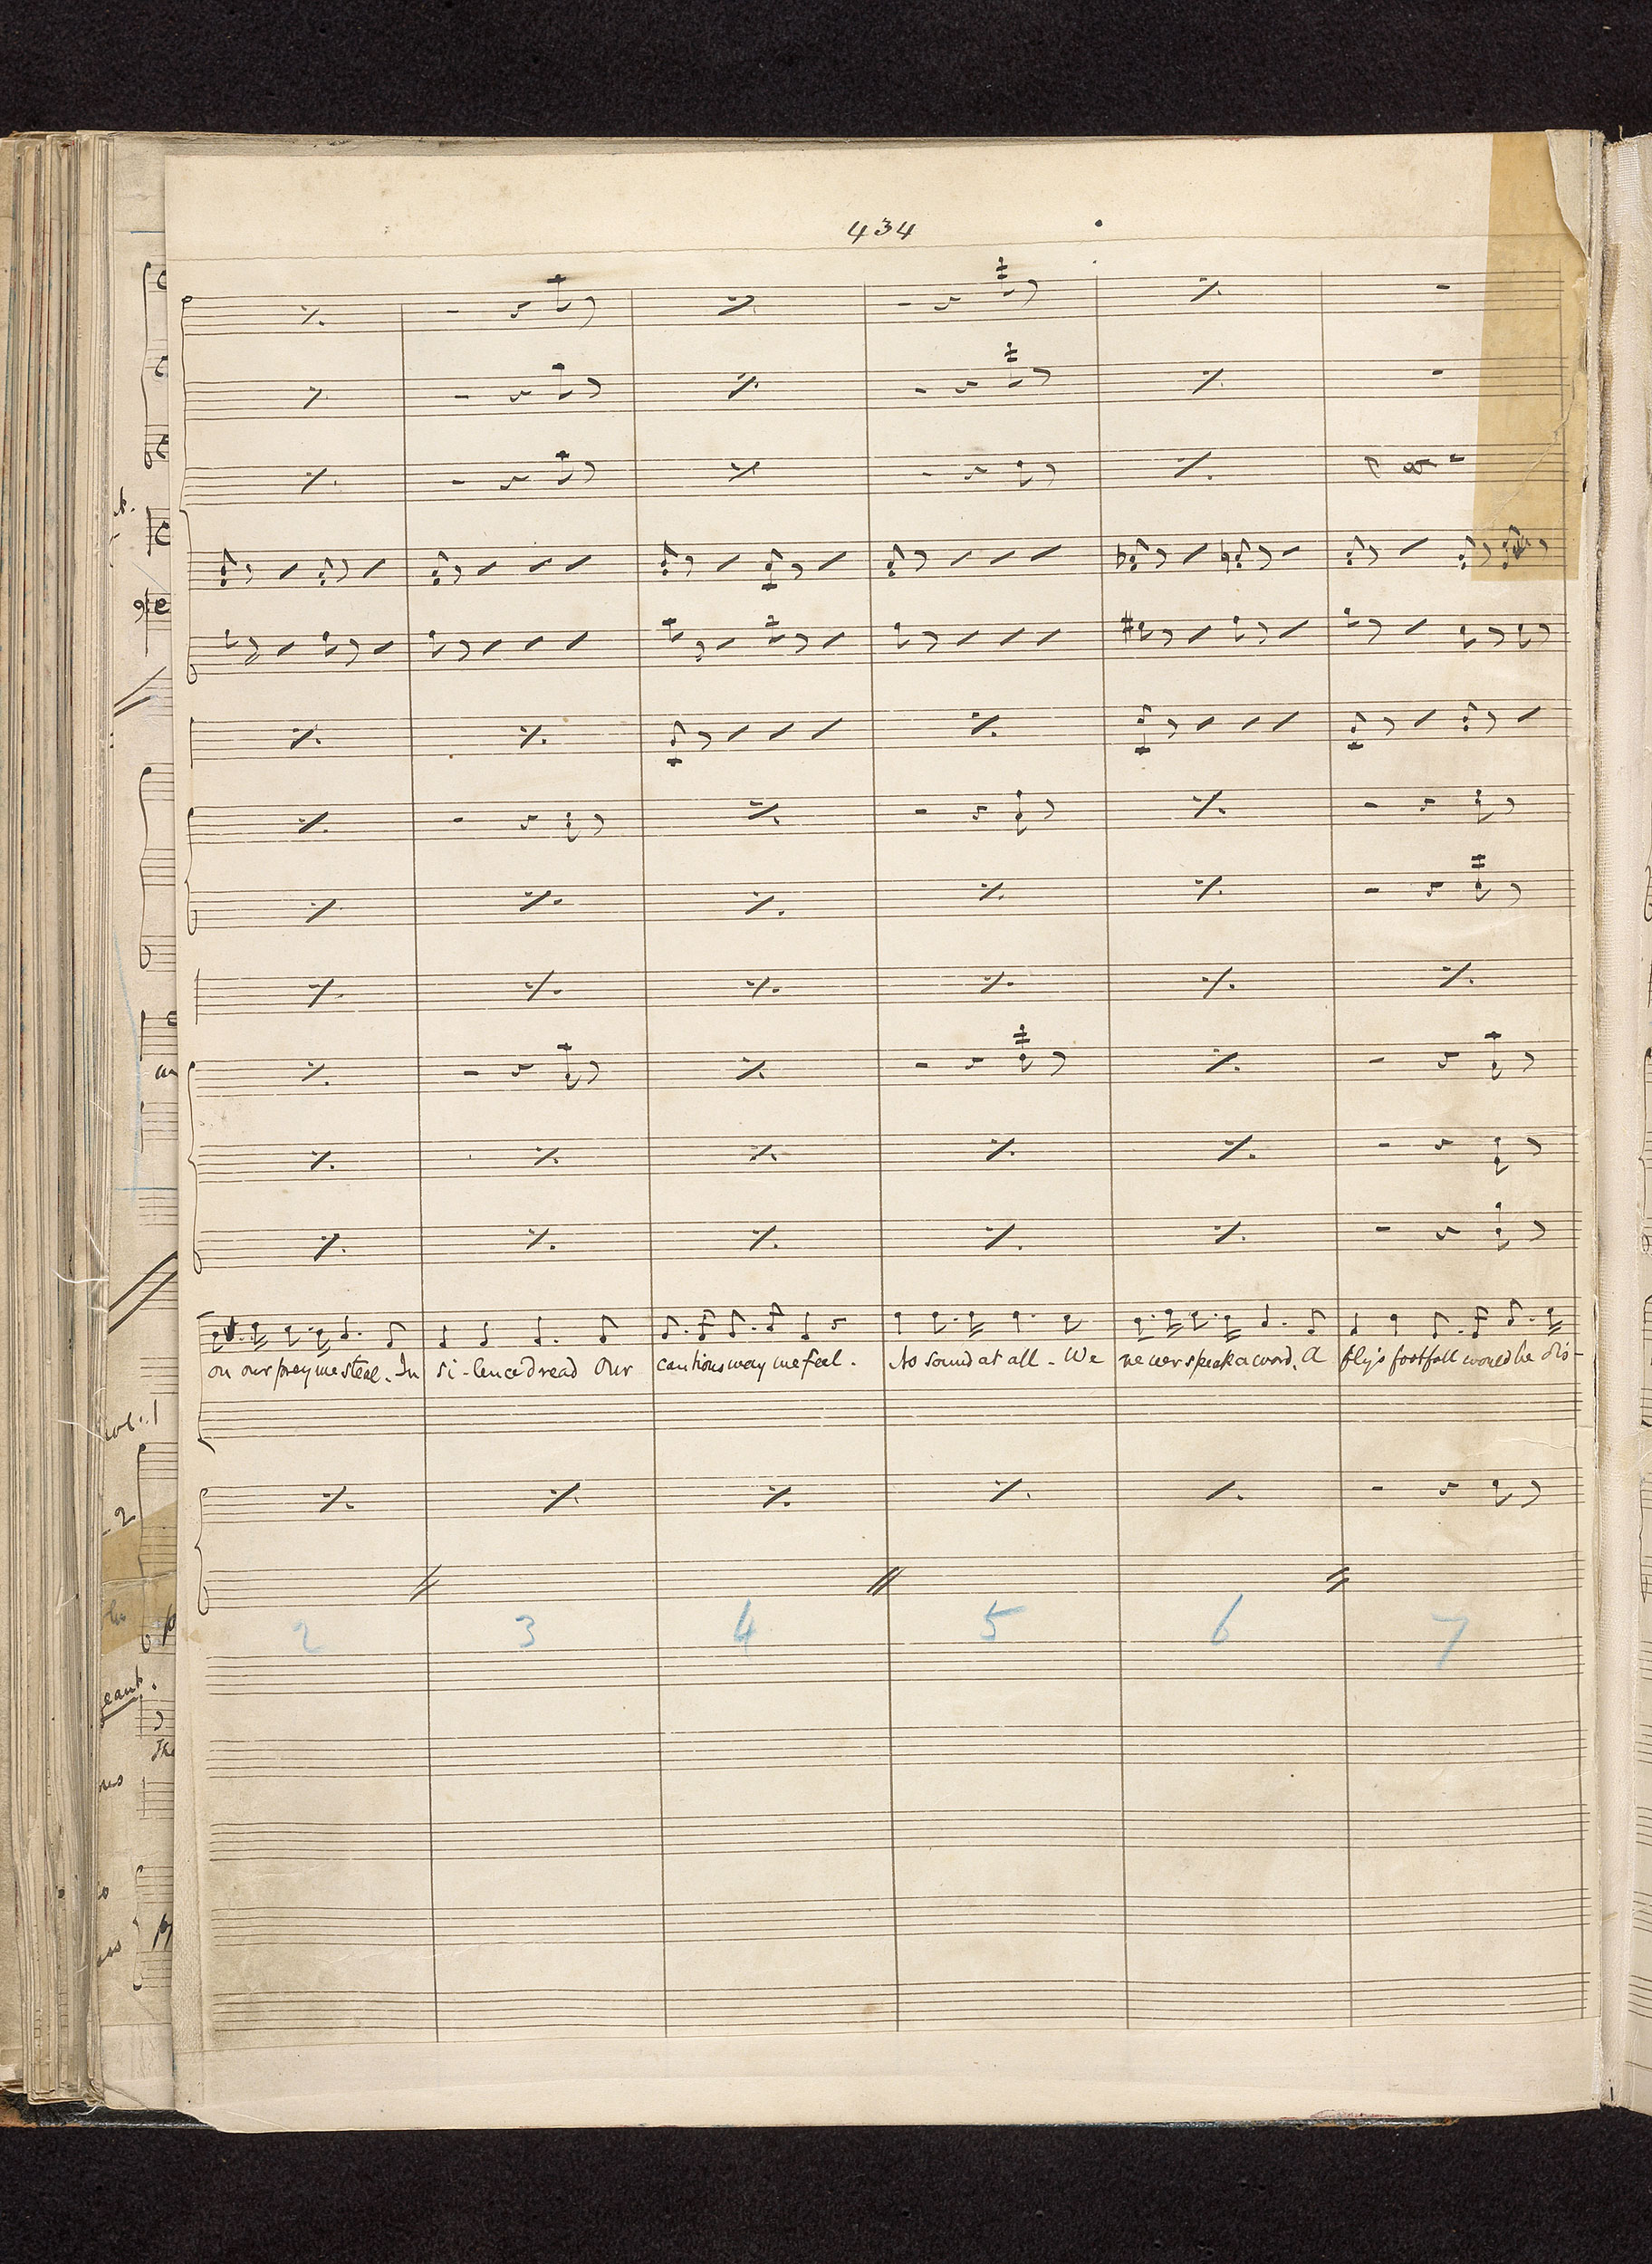 434
on our prey we steal. In si-lence dread Our cautious way we feel. No sound at all. We never speak a word. A fly's footfall would be dis-
2 3 4 5 6 7